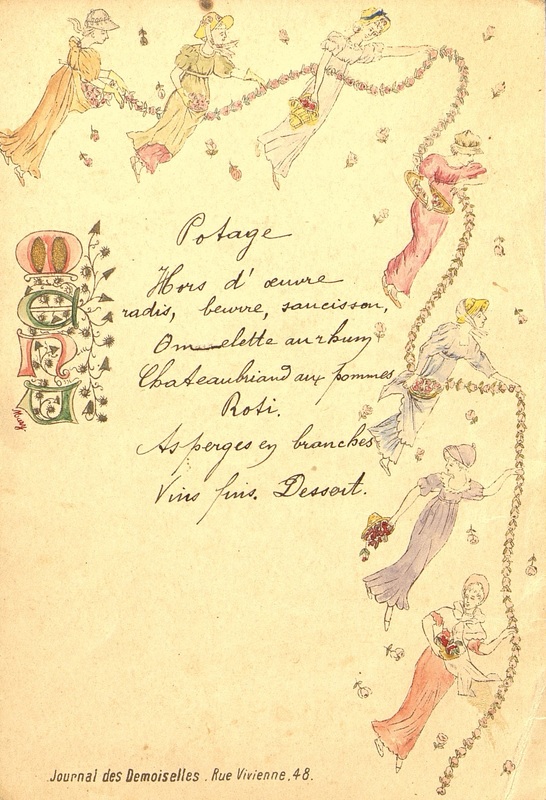 MENU
Potage
Hors d'œuvre
radis, beurre, saucisson,
Omelette au rhum
Chateaubriand aux pommes
Roti.
Asperges en branches
Vins fins. Dessert.
Journal des Demoiselles. Rue Vivienne. 48.